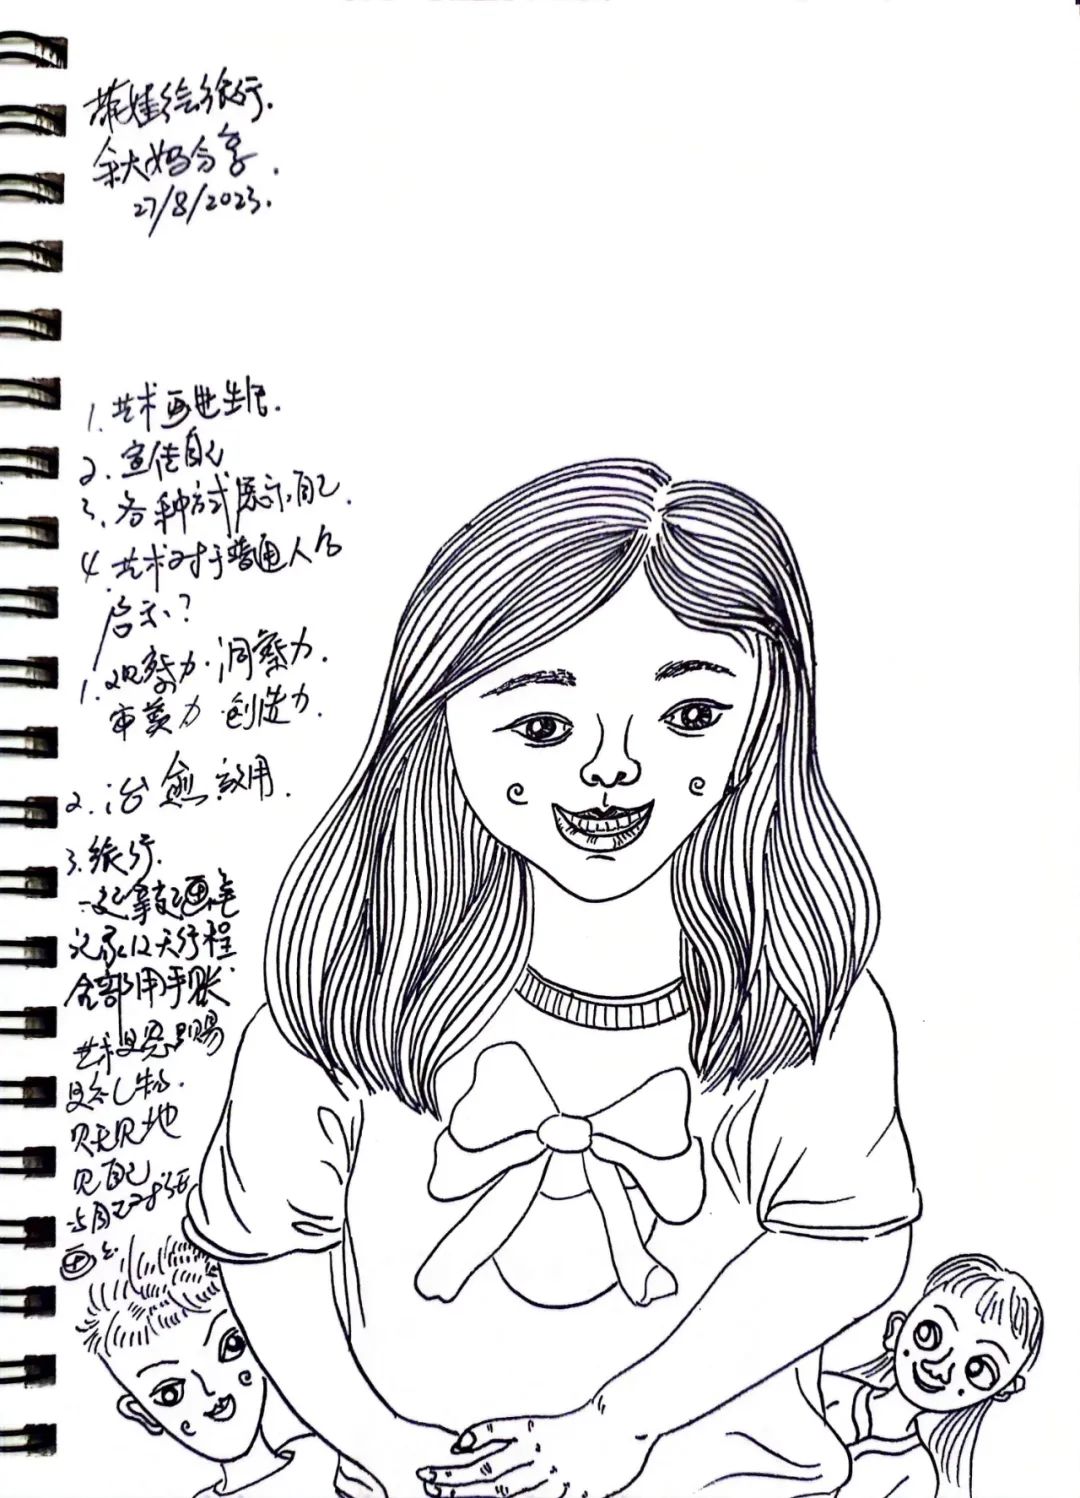 带娃绘旅行.
余大妈分享.
27/8/2023.
1.艺术画进生活.
2.宣传自己
3.各种方式展示自己.
4.艺术对于普通人的
启示?
1.观察力.洞察力.
审美力 创造力.
2.治愈效用.
3.旅行.
一定拿起画笔
记录12天行程
全部用手账
艺术是恩赐
是礼物.
见天见地
见自己
与自己对话
画